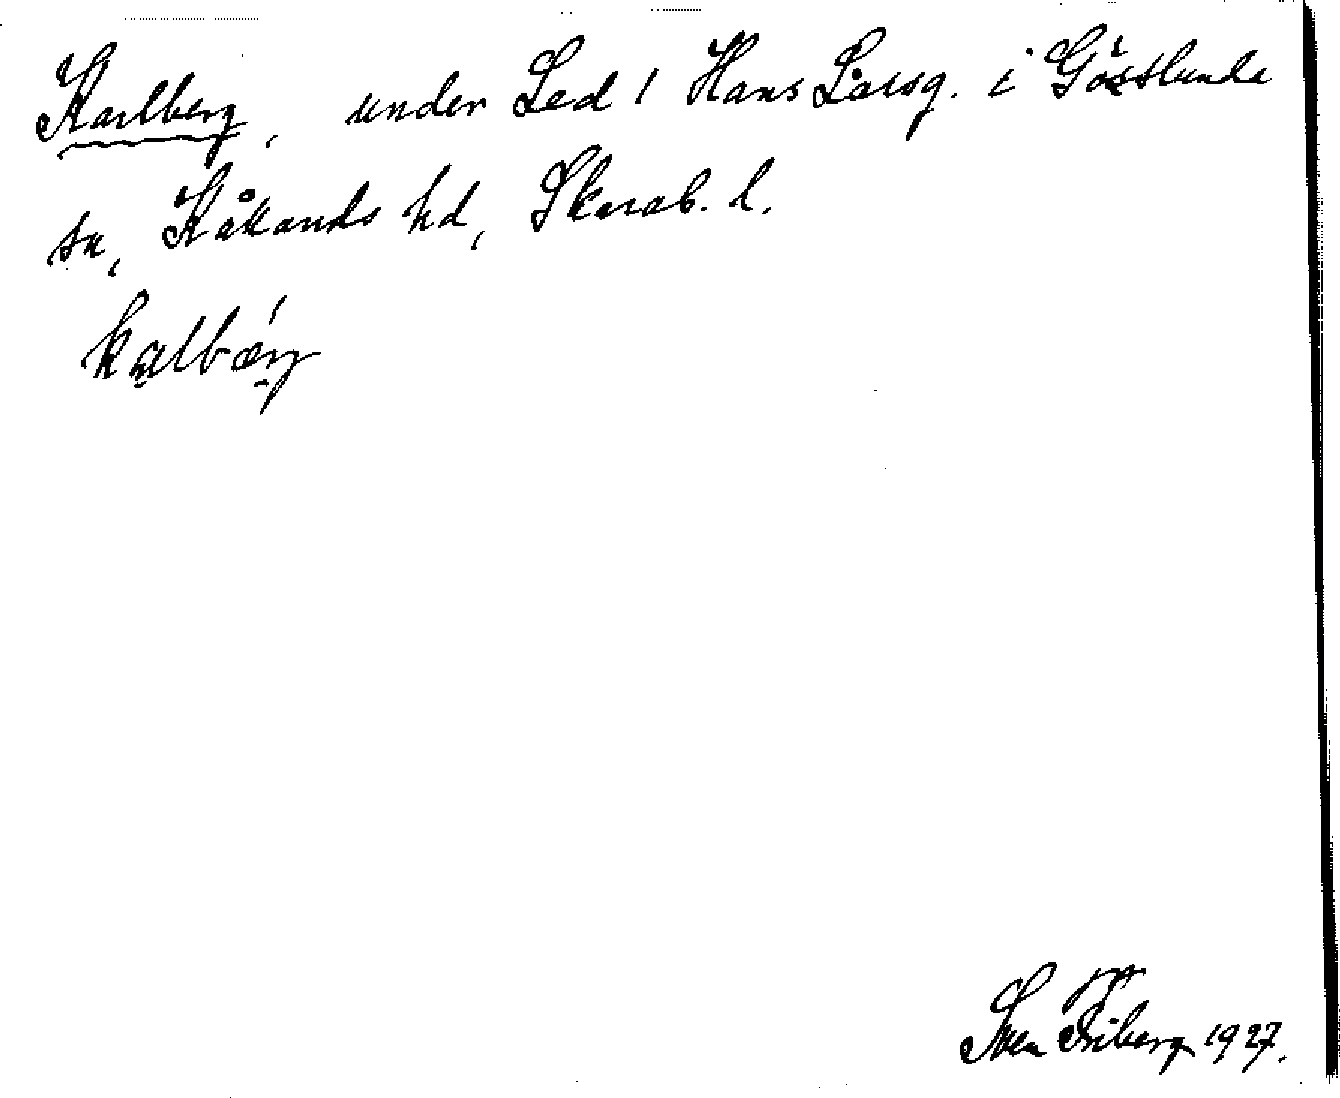 Karlberg, under Led 1 Hans Larsg. i Göstlunda
sn, Kåkands hd, Skarab. l.
kalbǽrj
Sven Friberg 1927.